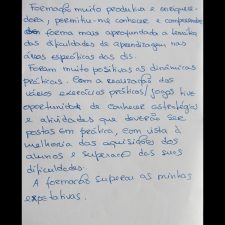 Formação muito produtiva e enriquece-
dora, permitiu-me conhecer e compreender
de forma mais aprofundada a temática
das dificuldades de aprendizagem nas
áreas específicas das
Foram muito positivas as dinâmicas
práticas. Com a realização dos
vários exercícios práticos/jogos tive
oportunidade de conhecer estratégias
e atividades que deverão ser
postas em prática, com vista à
melhoria das aquisições dos
alunos e superação das suas
dificuldades.
A formação superou as minhas
expetativas.